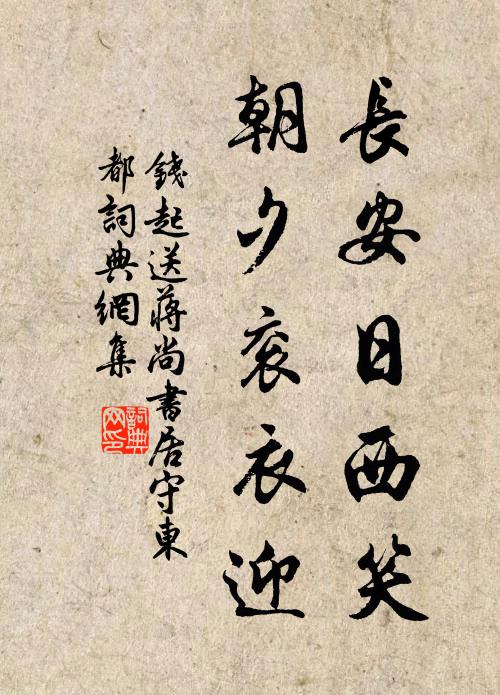 長安日西笑
朝夕衮衣迎
錢起送蔣尚書居守東
都詞典網集
詞典
网印